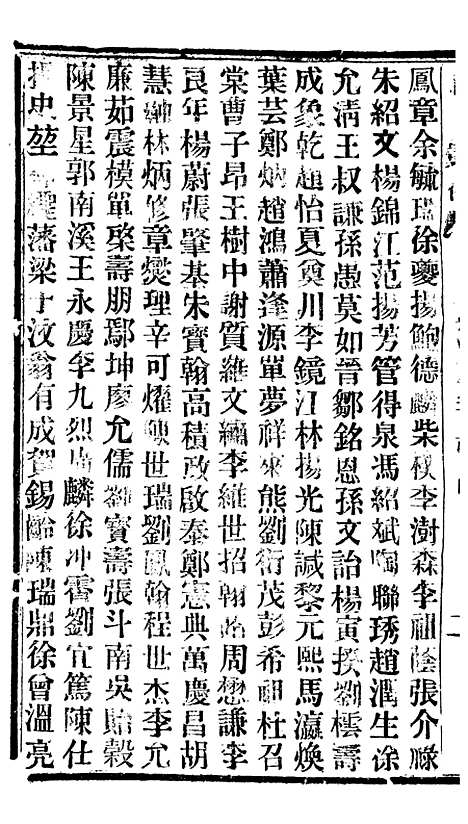 鳳章余毓瑞徐夔揚鮑德麟柴樸李澍森李祖蔭張介祿
朱紹文楊錦江范揚芳管得泉馮紹斌陶聯琇趙潤生徐
允淸王叔謙孫愚莫如晉鄒銘恩孫文詒楊寅揆劉樗壽
成象乾趙怡夏奠川李鏡江林揚光陳誠黎元熙馬瀛煥
葉芸鄭炳趙鴻蕭逢源單夢祥來熊劉衍茂彭希祖杜召
棠曹子昂王樹中謝質維文繡李維世招翰昭周懋謙李
良年楊蔚張肇基朱寶翰高積政啟泰鄭憲典萬慶昌胡
慧林炳修章爕理辛可燿世瑞劉鳳翰程世杰李允
廉茹震模單棨壽朋鄢坤廖允儒劉寶壽張斗南吳貽穀
陳景星郭南溪王永慶李九烈麟徐沖霄劉宜篤陳仕
史堃藩梁于汶翁有成賀錫齡陳瑞鼎徐曾溫亮